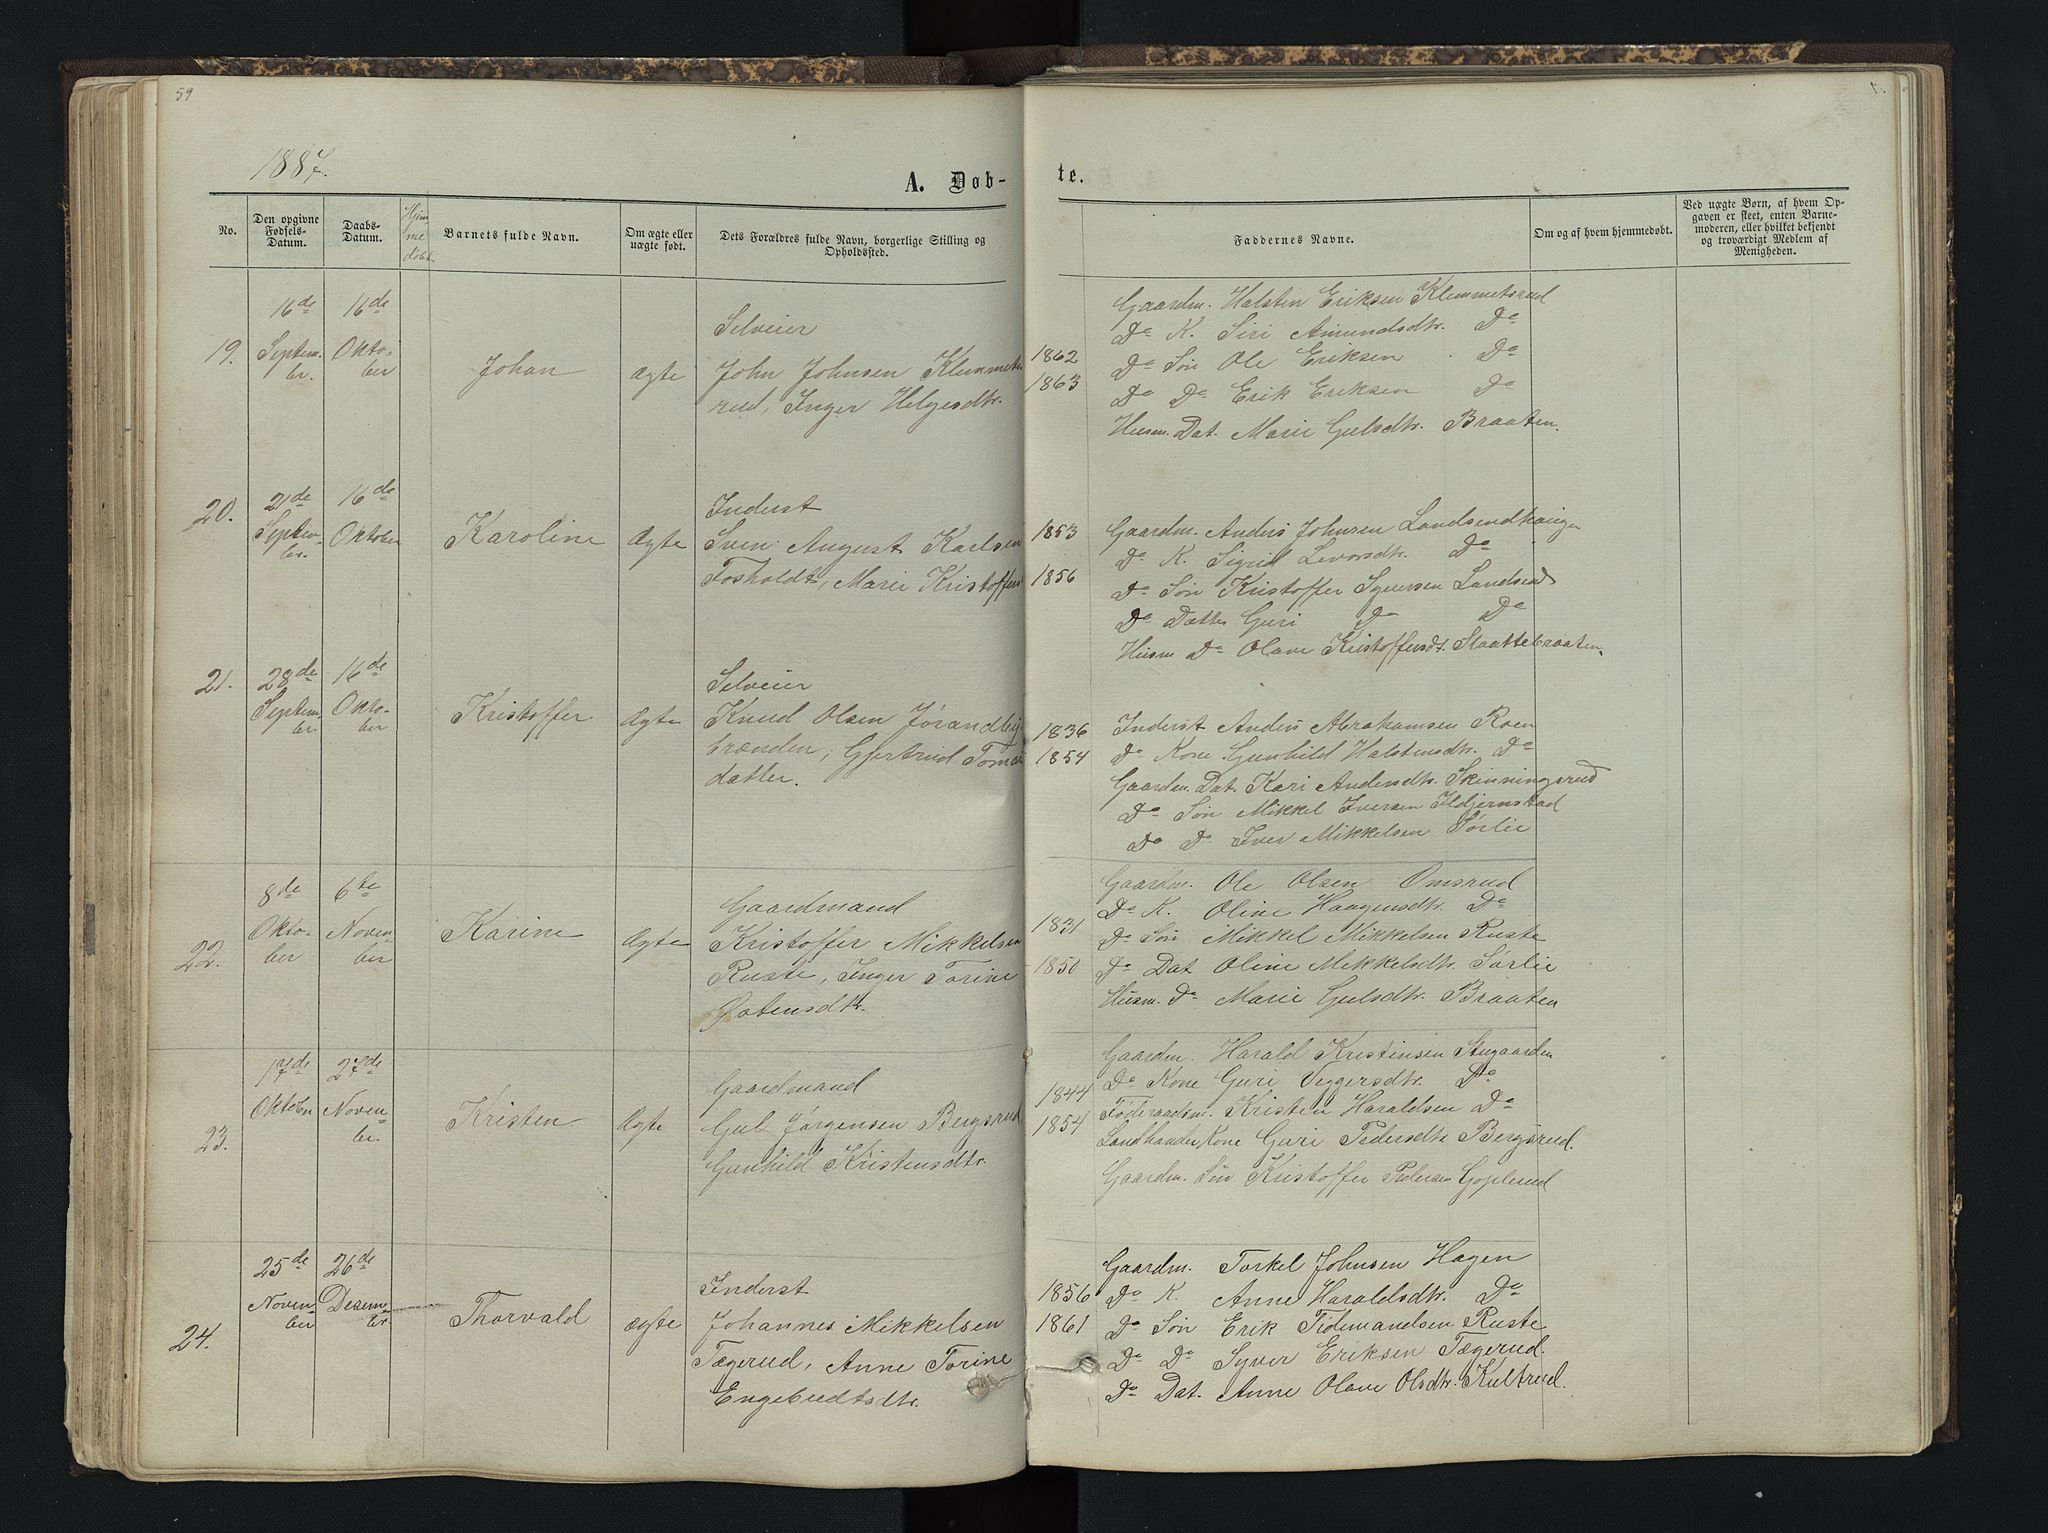 59
1887.
A. Døb-
te.
No.
Den opgivne Fødsels-Datum.
Daabs-Datum.
Hjem
me
døbt
Barnets fulde Navn.
Om ægte eller uægte født.
Dets Forældres fulde Navn, borgerlige Stilling og Opholdssted.
Faddernes Navne.
Om og af hvem hjemmedøbt.
Ved uægte Børn, af hvem Op-
gaven er skeet, enten Barne-
moderen, eller hvilket bekjendt
og troværdigt Medlem af
Menigheden.
19.
16de
Septem-
ber.
16de
Okto-
ber
Johan
Ægte
Selveier
John Johnsen Klemmets-
rud, Inger Helgesdtr.
1862
1863
Gaardm. Halsten Eriksen Klemmetsrud
Do K. Siri Amundsdtr. Do
Do Søn Ole Eriksen Do
Do Do Erik Eriksen Do
Husm. Dat. Marie Gulsdtr. Braaten.
20.
21de
Septem-
ber.
16de
Oktober
Karoline
Ægte
Inderst
Sven August Karlsen
Fosholdt, Marie Kristoffers
1853
1856
Gaardm. Anders Johnsen Landsendhaugen
Do K. Sigrid Levorsdtr. Do
Do Søn Kristoffer Syversen Landsend
Do Datter Guri Do Do
Husm Do Olave Kristoffersdt. Slaattebraaten.
21.
28de
Septem-
ber
16de
Okto-
ber
Kristoffer
Ægte
Selveier
Knud Olsen Jørandby
brænden, Gjertrud Tomas
datter.
1836
1854
Inderst Anders Abrahamsen Roen
Do Kone Gunhild Halstensdtr. Do
Gaardm. Dat. Kari Andersdtr. Skinningsrud
Do Søn Mikkel Iversen Ildjernstad
Do Do Iver Mikkelsen Sørlie
22.
8de
Okto-
ber
6te
Novem-
ber
Karine
Ægte
Gaardmand
Kristoffer Mikkelsen
Ruste, Inger Torine
Østensdtr.
1831
1850
Gaardm. Ole Olsen Omsrud
Do K. Oline Haagensdtr. Do
Do Søn Mikkel Mikkelsen Ruste
Do Dat Oline Mikkelsdtr. Sørlie
Husm. Do Marie Gulsdtr. Braaten
23.
17de
Oktober
27de
Novem-
ber.
Kristen
Ægte
Gaardmand
Gul Jørgensen Bergsrud
Gunhild Kristensdtr.
1844
1854
Gaardm. Harald Kristensen Stugaarden
Do Kone Guri Veggersdtr. Do
Føderaadsm. Kristen Haraldsen Do
Landhandler Kone Guri Pedersdtr Bergsrud.
Gaardm. Søn Kristoffer Pedersen Goplerud
24.
25de
Novem-
ber
26de
Desem-
br.
Thorvald
Ægte
Inderst
Johannes Mikkelsen
Tægerud, Anne Torine
Engebredtsdtr.
1856
1861
Gaardm. Torkel Johnsen Hagen
Do K. Anne Haraldsdtr. Do
Do Søn Erik Tidemandsen Ruste
Do Do Syver Eriksen Tægerud.
Do Dat. Anne Olave Olsdtr. Kultrud.